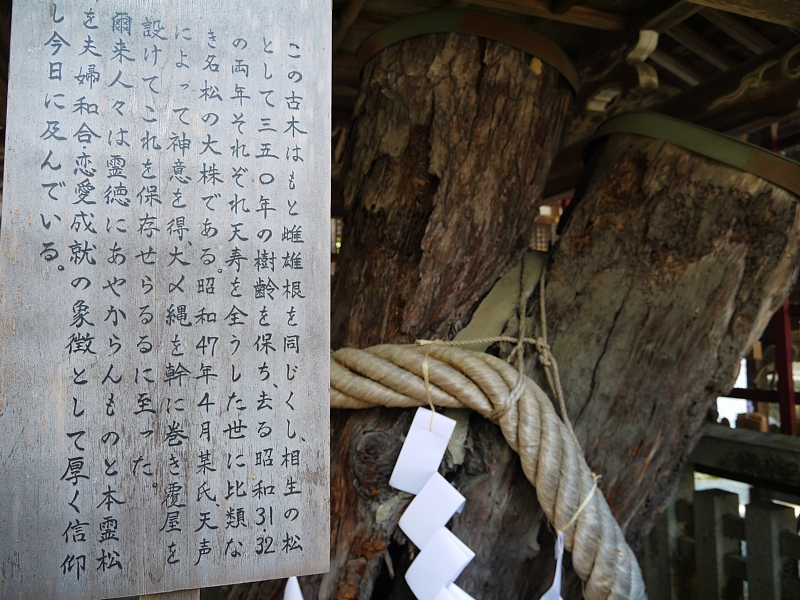 この古木はもと雌雄根を同じくし、相生の松
として三五〇年の樹齢を保ち、去る昭和31.32
の両年それぞれ天寿を全うした世に比類な
き名松の大株である。昭和47年4月某氏、天声
によって神意を得、大〆縄を幹に巻き覆屋を
設けてこれを保存せらるるに至った。
爾来人々は霊徳にあやからんものと本霊松
を夫婦和合・恋愛成就の象徴として厚く信仰
し今日に及んでいる。